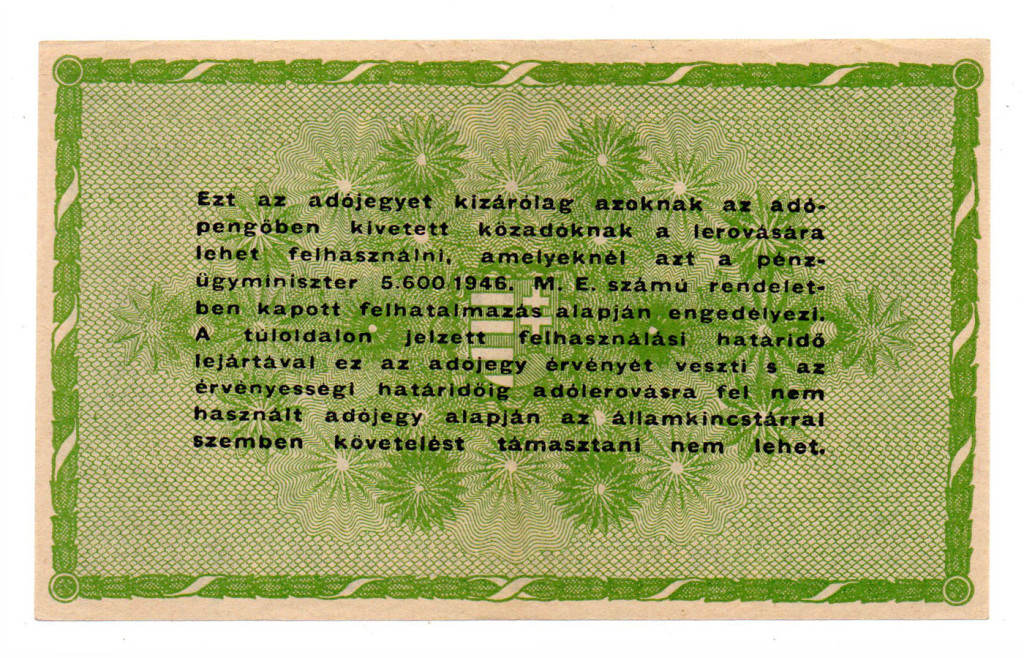 Ezt az adójegyet kizárólag azoknak az adó-
pengőben kivetett közadóknak a lerovására
lehet felhasználni, amelyeknél azt a pénz-
ügyminiszter 5.600 1946. M. E. számú rendelet-
ben kapott felhatalmazás alapján engedélyezi.
A túloldalon jelzett felhasználási határidő
lejártával ez az adójegy érvényét veszti s az
érvényességi határidőig adólerovásra fel nem
használt adójegy alapján az államkincstárral
szemben követelést támasztani nem lehet.